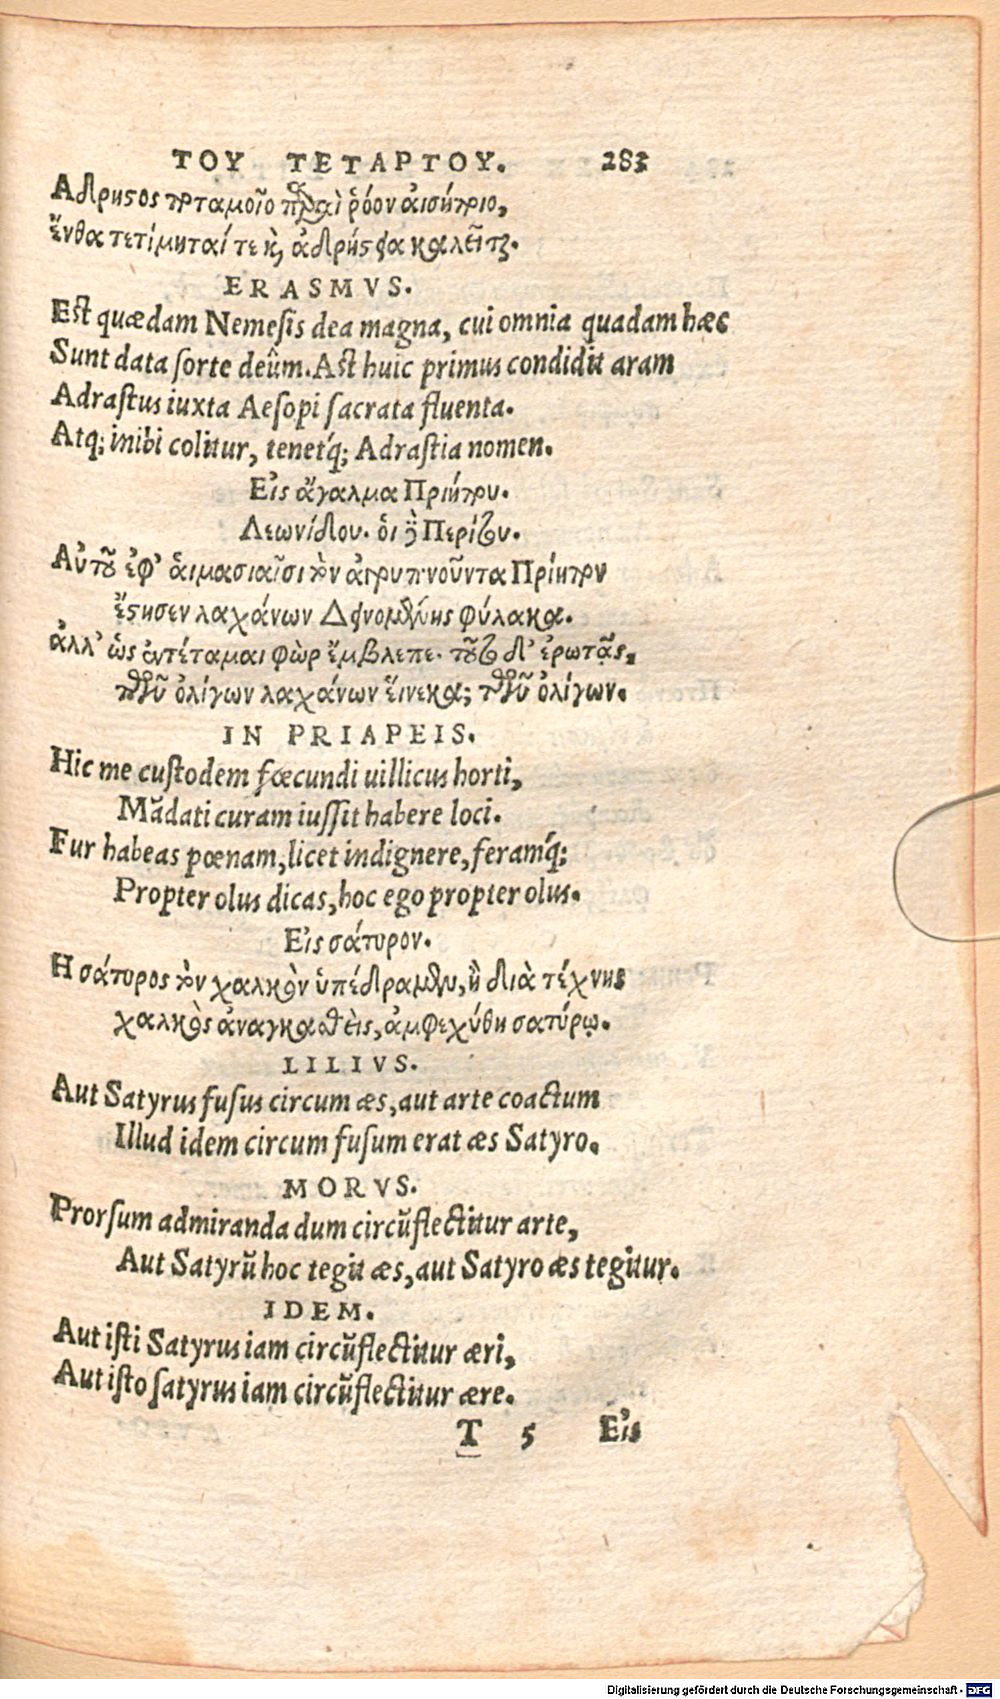 ΤΟΥ ΤΕΤΑΡΤΟΥ. 283
Αδρηστος ποταμοῖο παραὶ ῥόον αἰσήποιο,
ἔνθα τετίμηταί τε καὶ ἀδρήστεια καλεῖται.
ERASMVS.
Est quædam Nemeſis dea magna, cui omnia quadam hæc
Sunt data ſorte deûm. Aſt huic primus condidit aram
Adraſtus iuxta Aeſopi ſacrata fluenta.
Atq; inibi colitur, tenetq́; Adraſtia nomen.
Εἰς ἄγαλμα Πριήπου.
Λεωνίδου. ὁι δὲ Περίτου.
Αὐτοῦ ἐφ' ἁιμασιαῖσι τὸν ἀγρυπνοῦντα Πρίηπον
ἔστησεν λαχάνων Δεινομένης φύλακα.
ἀλλ' ὡς ἐντέταμαι φὼρ ἔμβλεπε. τοῦτο δ' ἐρωτᾷς,
τῶν ὀλίγων λαχάνων ἕινεκα; τῶν ὀλίγων.
IN PRIAPEIS.
Hic me cuſtodem fœcundi uillicus horti,
Mãdati curam iuſſit habere loci.
Fur habeas pœnam, licet indignere, feramq́;
Propter olus dicas, hoc ego propter olus.
Εἰς σάτυρον.
Η σάτυρος τὸν χαλκὸν ὑπέδραμεν, ἢ διὰ τέχνης
χαλκὸς ἀναγκασθεὶς, ἀμφεχύθη σατύρῳ.
LILIVS.
Aut Satyrus fuſus circum æs, aut arte coactum
Illud idem circum fuſum erat æs Satyro.
MORVS.
Prorſum admiranda dum circũflectitur arte,
Aut Satyrũ hoc tegit æs, aut Satyro æs tegitur.
IDEM.
Aut iſti Satyrus iam circũflectitur æri,
Aut iſto ſatyrus iam circũflectitur ære.
T 5 Εἰς
Digitalisierung gefördert durch die Deutsche Forschungsgemeinschaft - DFG